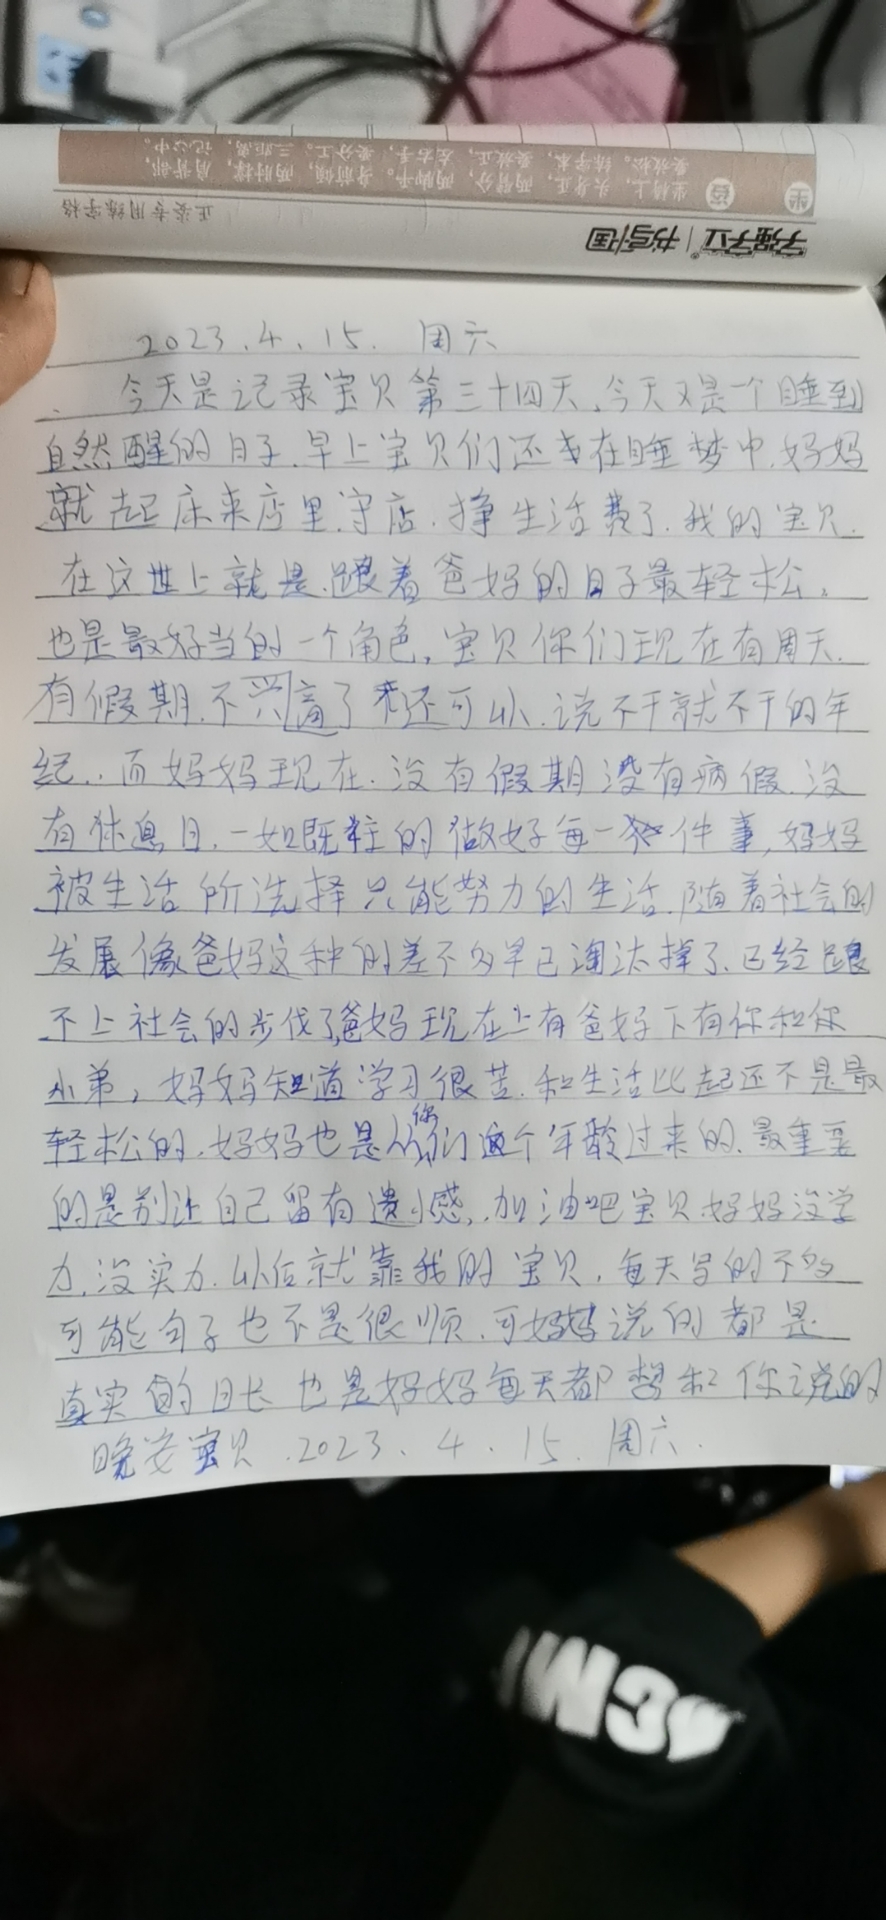 坐姿
坐椅上，头身正，两臂分，两脚平。身前倾，两肘撑，肩背部，
要放松。练字本，要放正，左右手，要分工。三距离，记心中。
正姿专用练字格
字强字立 书写中国
2023.4.15. 周六
今天是记录宝贝第三十四天,今天又是一个睡到
自然醒的日子.早上宝贝们还在睡梦中.妈妈
就起床来店里.守店.挣生活费了.我的宝贝.
在这世上就是.跟着爸妈的日子最轻松,
也是最好当的一个角色,宝贝你们现在有周天.
有假期.不兴奋了还可以.说不干就不干的年
纪..而妈妈现在.没有假期没有病假.没
有休息日.一如既往的做好每一件事,妈妈
被生活所选择只能努力的生活.随着社会的
发展像爸妈这种的差不多早已淘汰掉了.已经跟
不上社会的步伐了,爸妈现在上有爸妈下有你和你
小弟,妈妈知道学习很苦.和生活比起还不是最
轻松的.妈妈也是从你们这个年龄过来的.最重要
的是别让自己留有遗憾,加油吧宝贝.妈妈没学
力.没实力.以后就靠我的宝贝.每天写的不多
可能句子也不是很顺.可妈妈说的都是
真实的日长也是妈妈每天都想和你说的
晚安宝贝.2023.4.15.周六.
W3